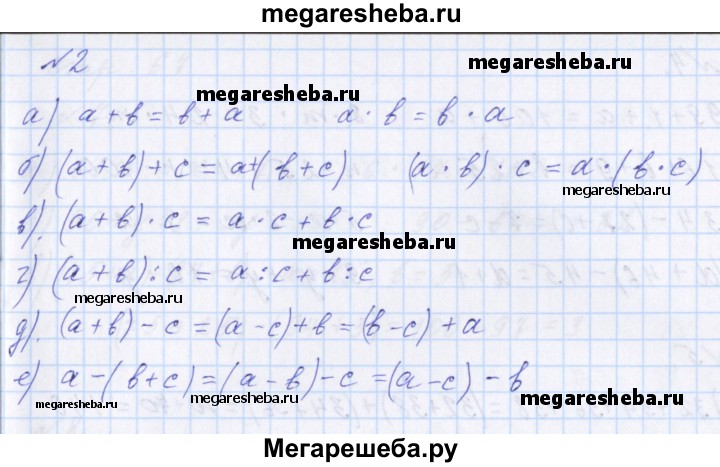 megaresheba.ru
№2
megaresheba.ru
megaresheba.ru
а) a + b = b + a a · b = b · a
б) (a + b) + c = a + (b + c) (a · b) · c = a · (b · c)
megaresheba.ru
в) (a + b) · c = a · c + b · c
megaresheba.ru
г) (a + b) : c = a : c + b : c
megaresheba.ru
д) (a + b) – c = (a – c) + b = (b – c) + a
е) a – (b + c) = (a – b) – c = (a – c) – b
megaresheba.ru
megaresheba.ru
megaresheba.ru
Мегарешеба.ру